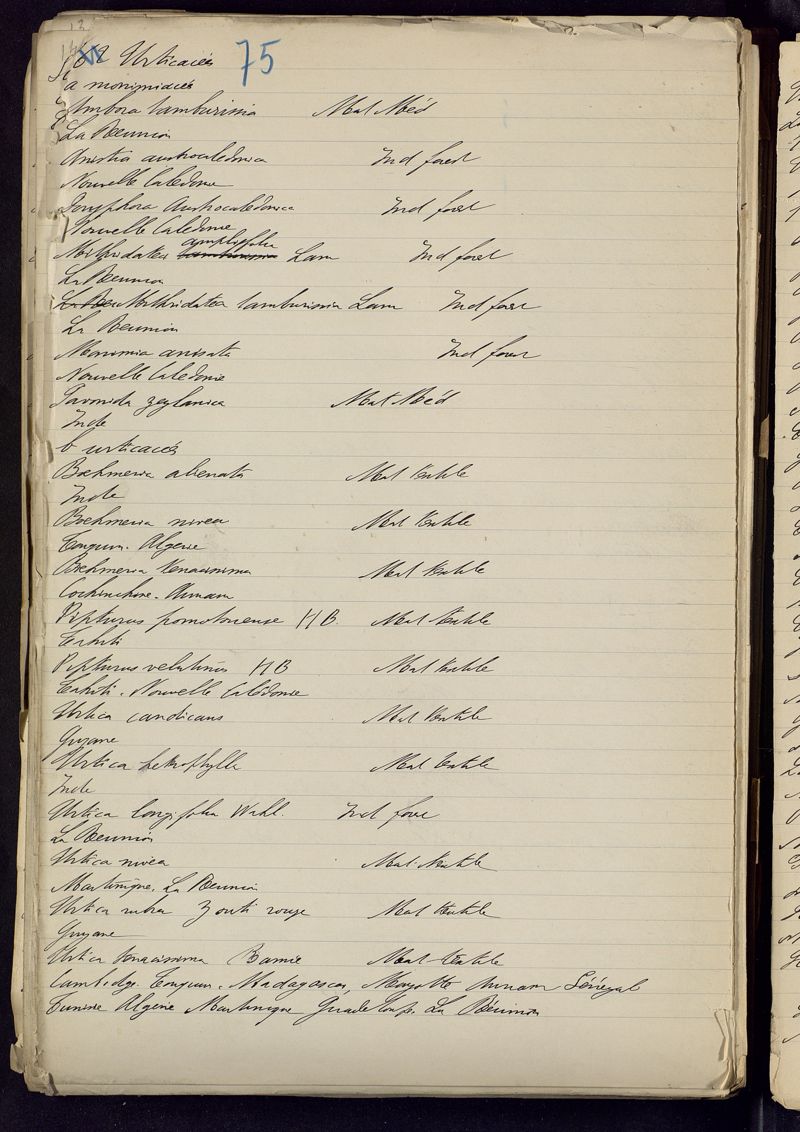 75
Urticacées
a monimiacées
Ambora tamburissia Mat Méd
La Réunion
Anistia austrocaledonica Ind forest
Nouvelle Calédonie
Doryphora Austrocaledonica Ind forest
Nouvelle Calédonie
Mithridatea amplifolia Lam Ind forest
La Réunion
Mithridatea tamburissia Lam Ind forest
La Réunion
Monimia anisata Ind forest
Nouvelle Calédonie
Pavonida zeylanica Mat Méd
Inde
b urticacées
Boehmeria alienata Mat textile
Inde
Boehmeria nivea Mat textile
Tonquin. Algérie
Boehmeria tenacissima Mat textile
Cochinchine. Annam
Pipturus pomotouense H B. Mat textile
Tahiti
Pipturus velutinus H B Mat textile
Tahiti. Nouvelle Calédonie
Urtica candicans Mat textile
Guyane
Urtica heterophylle Mat textile
Inde
Urtica longifolia Wahl. Ind fore
La Réunion
Urtica nivea Mat. textile
Martinique. La Réunion
Urtica rubra Zouti rouge Mat textile
Guyane
Urtica tenacissima Ramie Mat textile
Cambodge. Tonquin. Madagascar, Mayotte Annam Sénégal
Tunisie Algérie Martinique Guadeloupe La Réunion